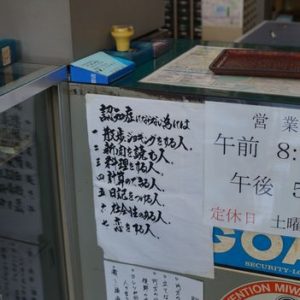 認知症にならない為には
一 散歩ジョギングをする人、
二 新聞を読む人、
三 料理をする人、
四 計算のできる人、
五 日記をつける人、
六 社会性のある人、
七 恋をする人、
営業
午前 8:
午後 5
定休日 土曜
GOA
SECURITY
ENTION MIW